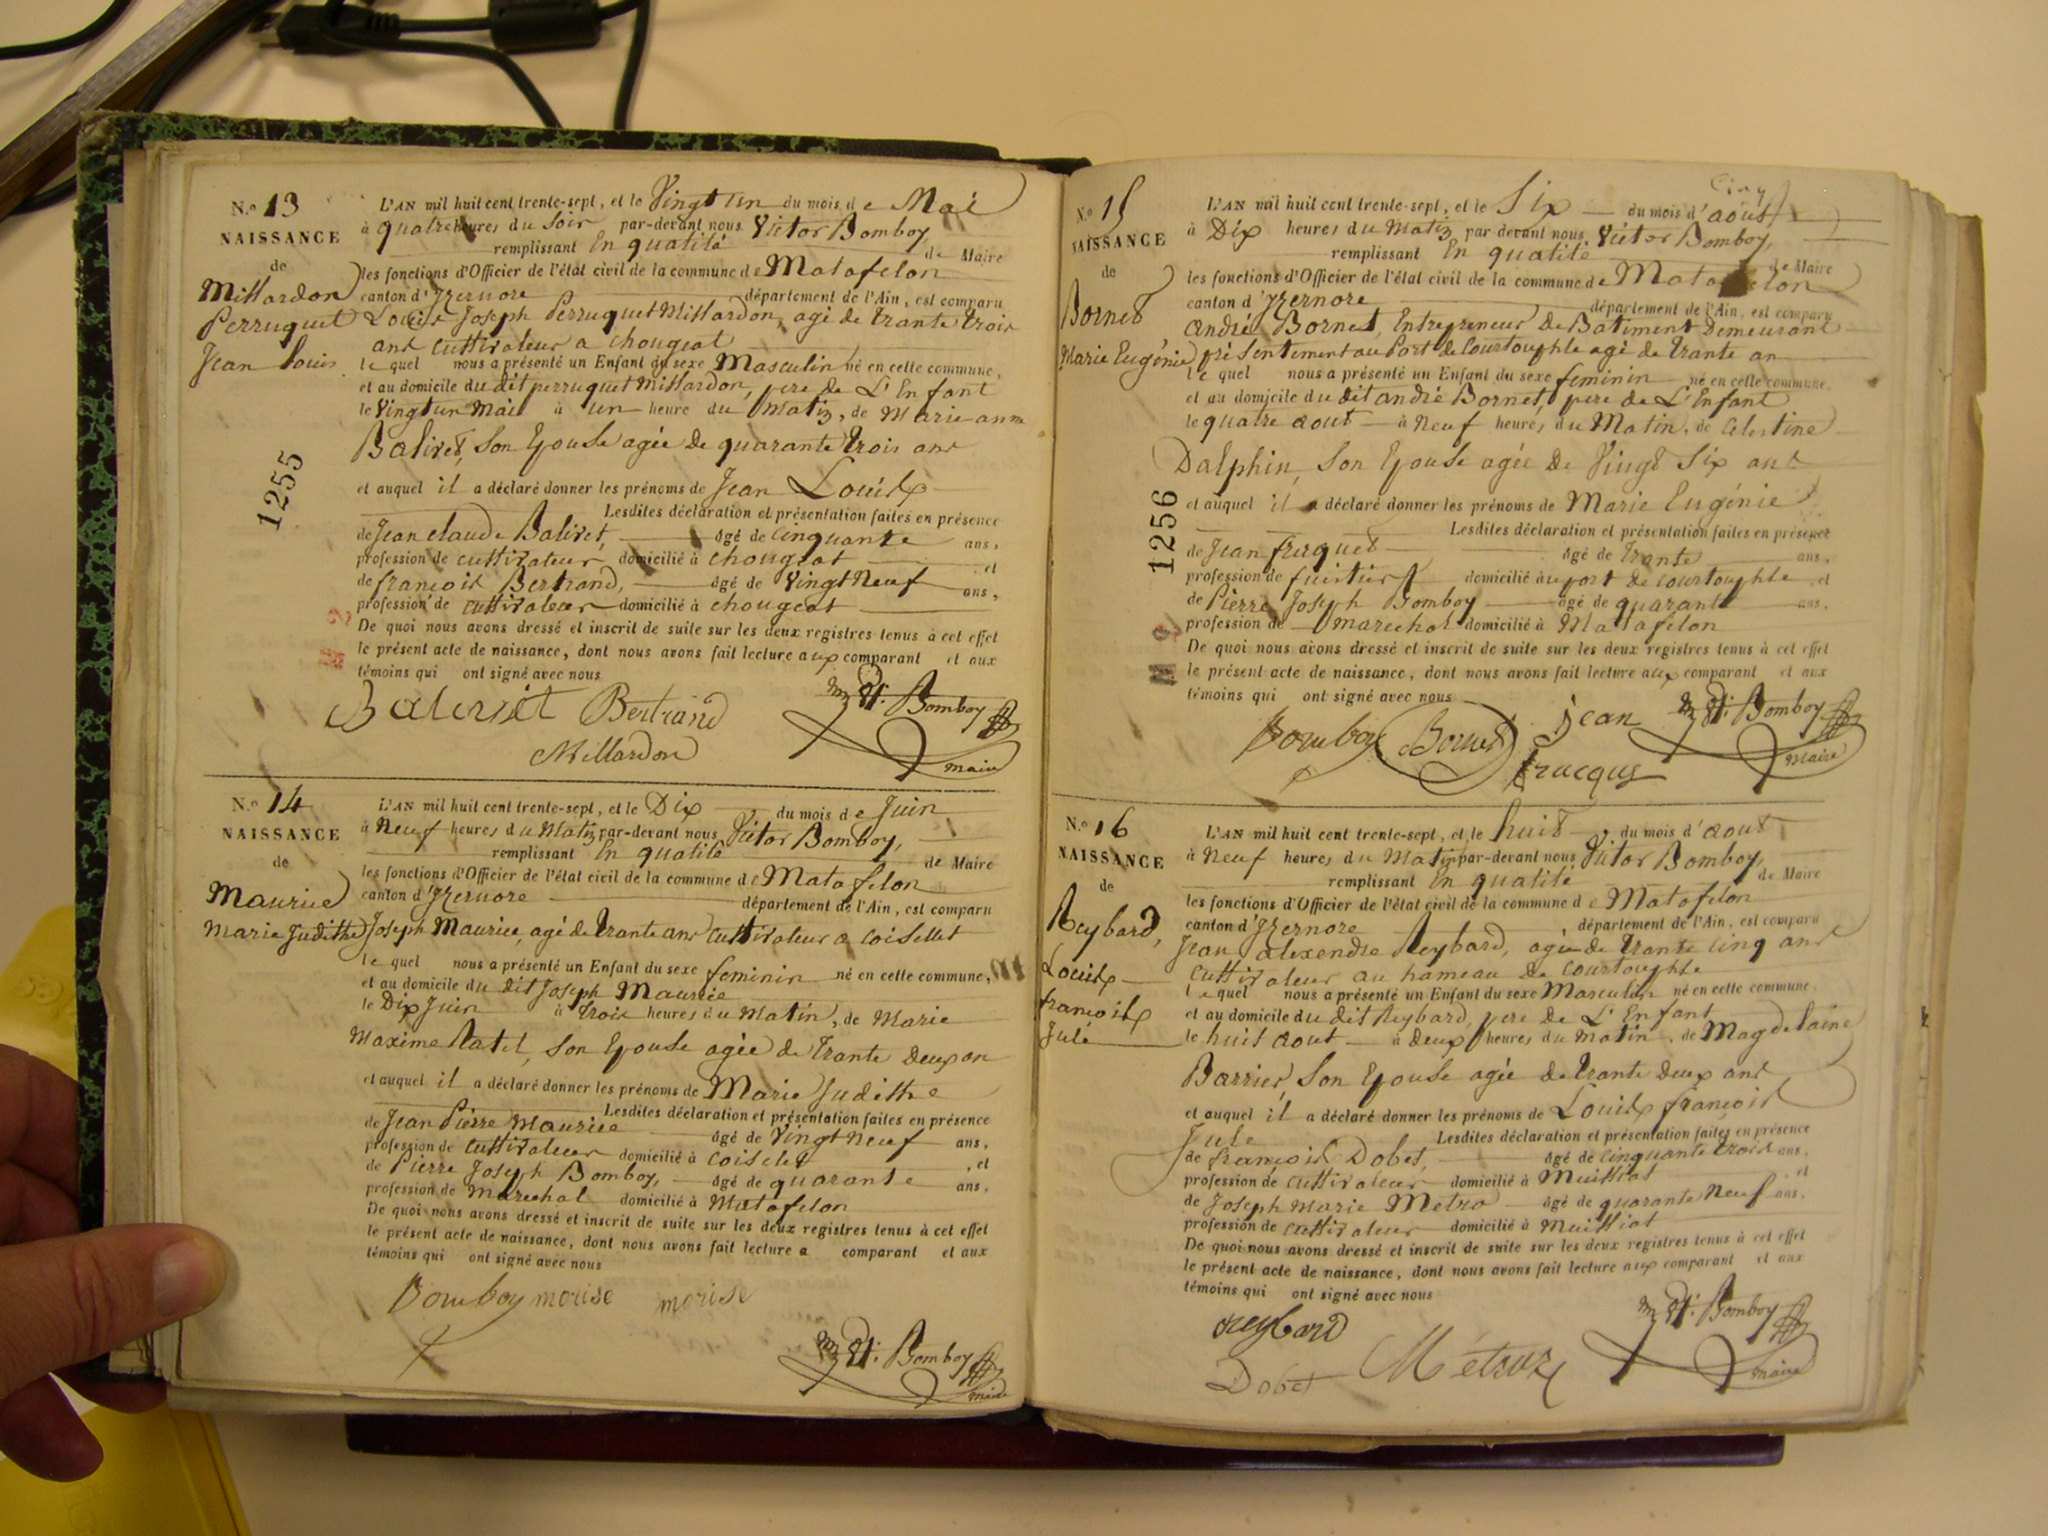 N.º 13
NAISSANCE
de
Millardon
Perruquet
Jean Louis
L'AN mil huit cent trente-sept, et le Vingt un du mois de Mai
à quatre heures du Soir par-devant nous Victor Bomboy
remplissant En qualité de Maire
les fonctions d'Officier de l'état civil de la commune de Matafelon
canton d'Izernore département de l'Ain, est comparu
Louis Joseph Perruquet Millardon, agé de trante trois
ans cuttivateur a chougeat
le quel nous a présenté un Enfant du sexe Masculin né en cette commune,
et au domicile du dit perruquet Millardon, pere de L'Enfant
le Vingt un Mai à un heure du Matin, de Marie anne
Balivet, son Epouse agée de quarante trois ans
et auquel il a déclaré donner les prénoms de Jean Louis
Lesdites déclaration et présentation faites en présence
de Jean claude Balivet, âgé de cinquante ans,
profession de cuttivateur domicilié à chougeat et
de françois Bertrand, âgé de Vingt Neuf ans,
profession de cuttivateur domicilié à chougeat
De quoi nous avons dressé et inscrit de suite sur les deux registres tenus à cet effet
le présent acte de naissance, dont nous avons fait lecture aux comparant et aux
témoins qui ont signé avec nous
Bertrand Bomboy
Millardon maire
1255
N.º 14
NAISSANCE
de
Maurice
Marie Judithe
L'AN mil huit cent trente-sept, et le Dix du mois de Juin
à Neuf heures du Matin par-devant nous Victor Bomboy,
remplissant En qualité de Maire
les fonctions d'Officier de l'état civil de la commune de Matafelon
canton d'Izernore département de l'Ain, est comparu
Joseph Maurice, agé de trante ans cuttivateur a coisellet
le quel nous a présenté un Enfant du sexe feminin né en cette commune,
et au domicile du dit Joseph Maurice
le Dix Juin à trois heures du Matin, de Marie
Maxime Ratel, son Epouse agée de trante Deux an
et auquel il a déclaré donner les prénoms de Marie Judithe
Lesdites déclaration et présentation faites en présence
de Jean Pierre Maurice âgé de Vingt Neuf ans,
profession de cuttivateur domicilié à coiselet , et
de Pierre Joseph Bomboy, âgé de quarante ans,
profession de Marechal domicilié à Matafelon
De quoi nous avons dressé et inscrit de suite sur les deux registres tenus à cet effet
le présent acte de naissance, dont nous avons fait lecture a comparant et aux
témoins qui ont signé avec nous
Bomboy morise morise
Bomboy
maire
N.º 15
NAISSANCE
de
Bornet
Marie Eugénie
Cinq
L'AN mil huit cent trente-sept, et le Six du mois d'aout
à Dix heures du Matin par devant nous Victor Bomboy,
remplissant En qualité de Maire
les fonctions d'Officier de l'état civil de la commune de Matafelon
canton d'Izernore département de l'Ain, est comparu
André Bornet, Entrepreneur de Batiment Demeurant
présentement au Port de Courtouphle agé de trante an
le quel nous a présenté un Enfant du sexe feminin né en cette commune,
et au domicile du dit andré Bornet, pere de L'Enfant
le quatre aout à Neuf heures du Matin, de Celestine
Dalphin, Son Epouse agée de Vingt Six ans
et auquel il a déclaré donner les prénoms de Marie Eugénie
Lesdites déclaration et présentation faites en présence
de Jean âgé de trante ans,
profession de domicilié au port de courtouphle , et
de Pierre Joseph Bomboy âgé de quarante ans,
profession de marechal domicilié à Matafelon
De quoi nous avons dressé et inscrit de suite sur les deux registres tenus à cet effet
le présent acte de naissance, dont nous avons fait lecture aux comparant et aux
témoins qui ont signé avec nous
Bomboy Bornet jean Bomboy
maire
1256
N.º 16
NAISSANCE
de
Reybard,
Louis
françois
Jule
L'AN mil huit cent trente-sept, et le huit du mois d'aout
à Neuf heures du Matin par-devant nous Victor Bomboy,
remplissant En qualité de Maire
les fonctions d'Officier de l'état civil de la commune de Matafelon
canton d'Izernore département de l'Ain, est comparu
Jean alexendre Reybard, agée de trante cinq ans
cuttivateur au hameau de courtouphle
le quel nous a présenté un Enfant du sexe Masculin né en cette commune
et au domicile du dit Reybard, pere de L'Enfant
le huit aout à deux heures du matin, de Magdelaine
Barrier, son Epouse agée de trante deux ans
et auquel il a déclaré donner les prénoms de Louis françois
Jule Lesdites déclaration et présentation faites en présence
de françois Dobet, âgé de cinquante trois ans,
profession de cuttivateur domicilié à Muittiat et
de Joseph Marie Métra âgé de quarante Neuf ans,
profession de cuttivateur domicilié à Muittiat
De quoi nous avons dressé et inscrit de suite sur les deux registres tenus à cet effet
le présent acte de naissance, dont nous avons fait lecture aux comparant et aux
témoins qui ont signé avec nous
reybard Bomboy
Dobet maire